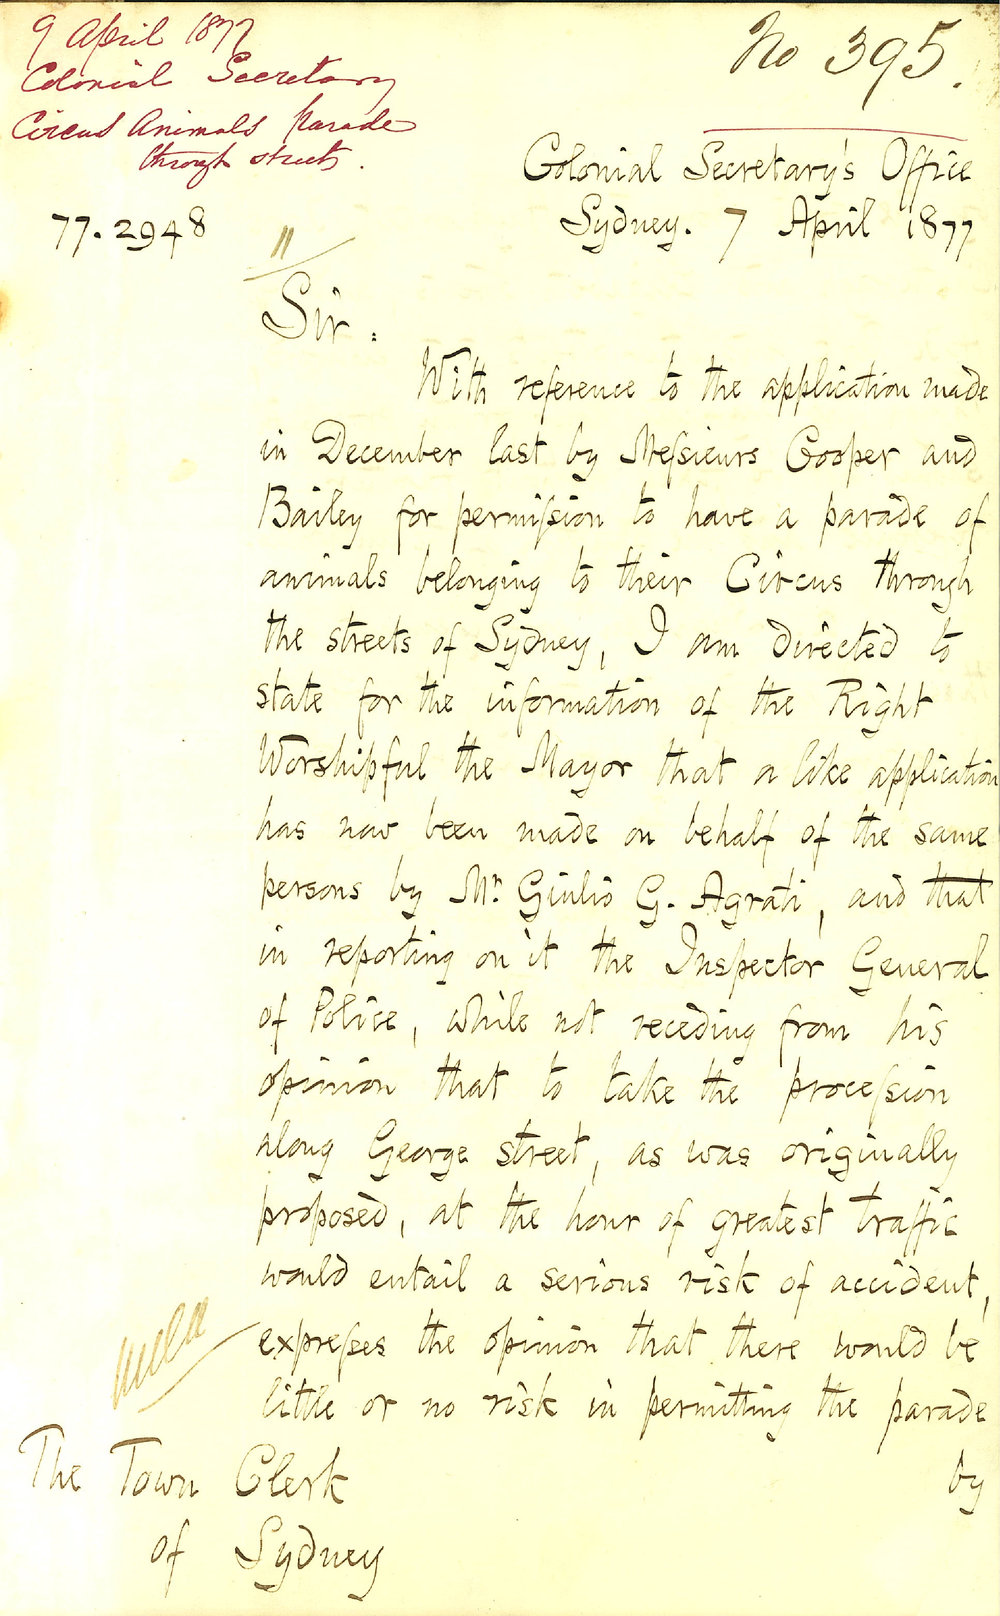 9 April 1877
Colonial Secretary
Circus Animals Parade
through streets.
No 395.
Colonial Secretary's Office
Sydney. 7 April 1877
77.2948
Sir.
With reference to the application made
in December last by Messieurs Cooper and
Bailey for permission to have a parade of
animals belonging to their Circus through
the streets of Sydney, I am directed to
state for the information of the Right
Worshipful the Mayor that a like application
has now been made on behalf of the same
persons by Mr. Giulio G. Agrati, and that
in reporting on it the Inspector General
of Police, while not receding from his
opinion that to take the procession
along George street, as was originally
proposed, at the hour of greatest traffic
would entail a serious risk of accident,
expresses the opinion that there would be
little or no risk in permitting the parade
by
The Town Clerk
of Sydney